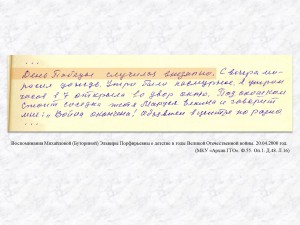 ...
День Победы случился внезапно. С вечера мо-
росил дождь. Утро было пасмурное. Я утром
часов в 7 открыла во двор окно. Под окошком
стоит соседка тетя Маруся и говорит
мне: Война окончена! Объявили в
...
Воспоминания Михайловой (Буториной) Эльвиры Порфирьевны о детстве в годы Великой Отечественной войны. 20.04.2006 год.
(МКУ «Архив ГГО». Ф.55. Оп.1. Д.48. Л.16)